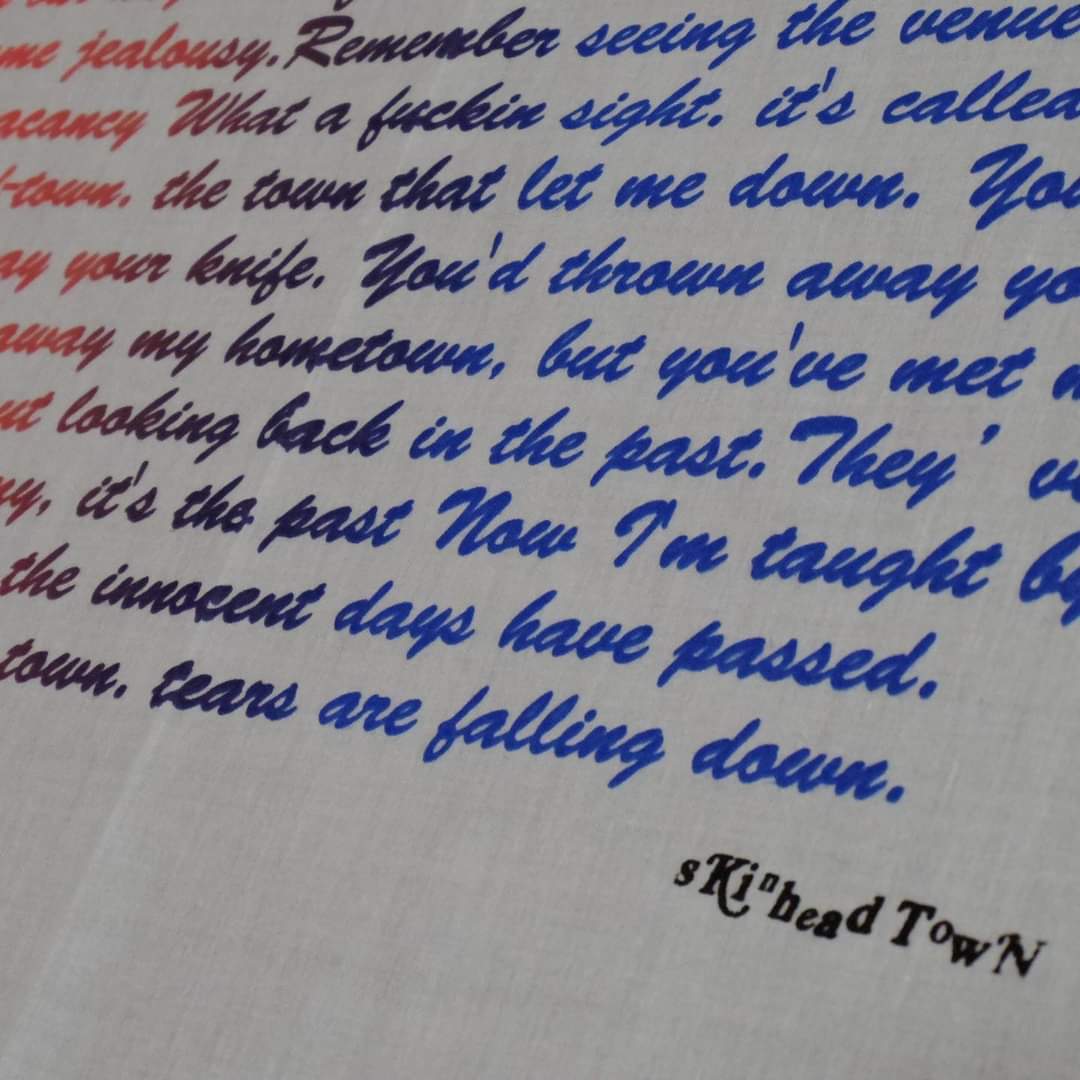 me jealousy. Remember seeing the venue
acancy What a fuckin sight. it's called
-town. the town that let me down. You
ay your knife. You'd thrown away yo
away my hometown, but you've met
ut looking back in the past. They' ve
y, it's the past Now I'm taught by
the innocent days have passed.
town. tears are falling down.
sKinhead TowN